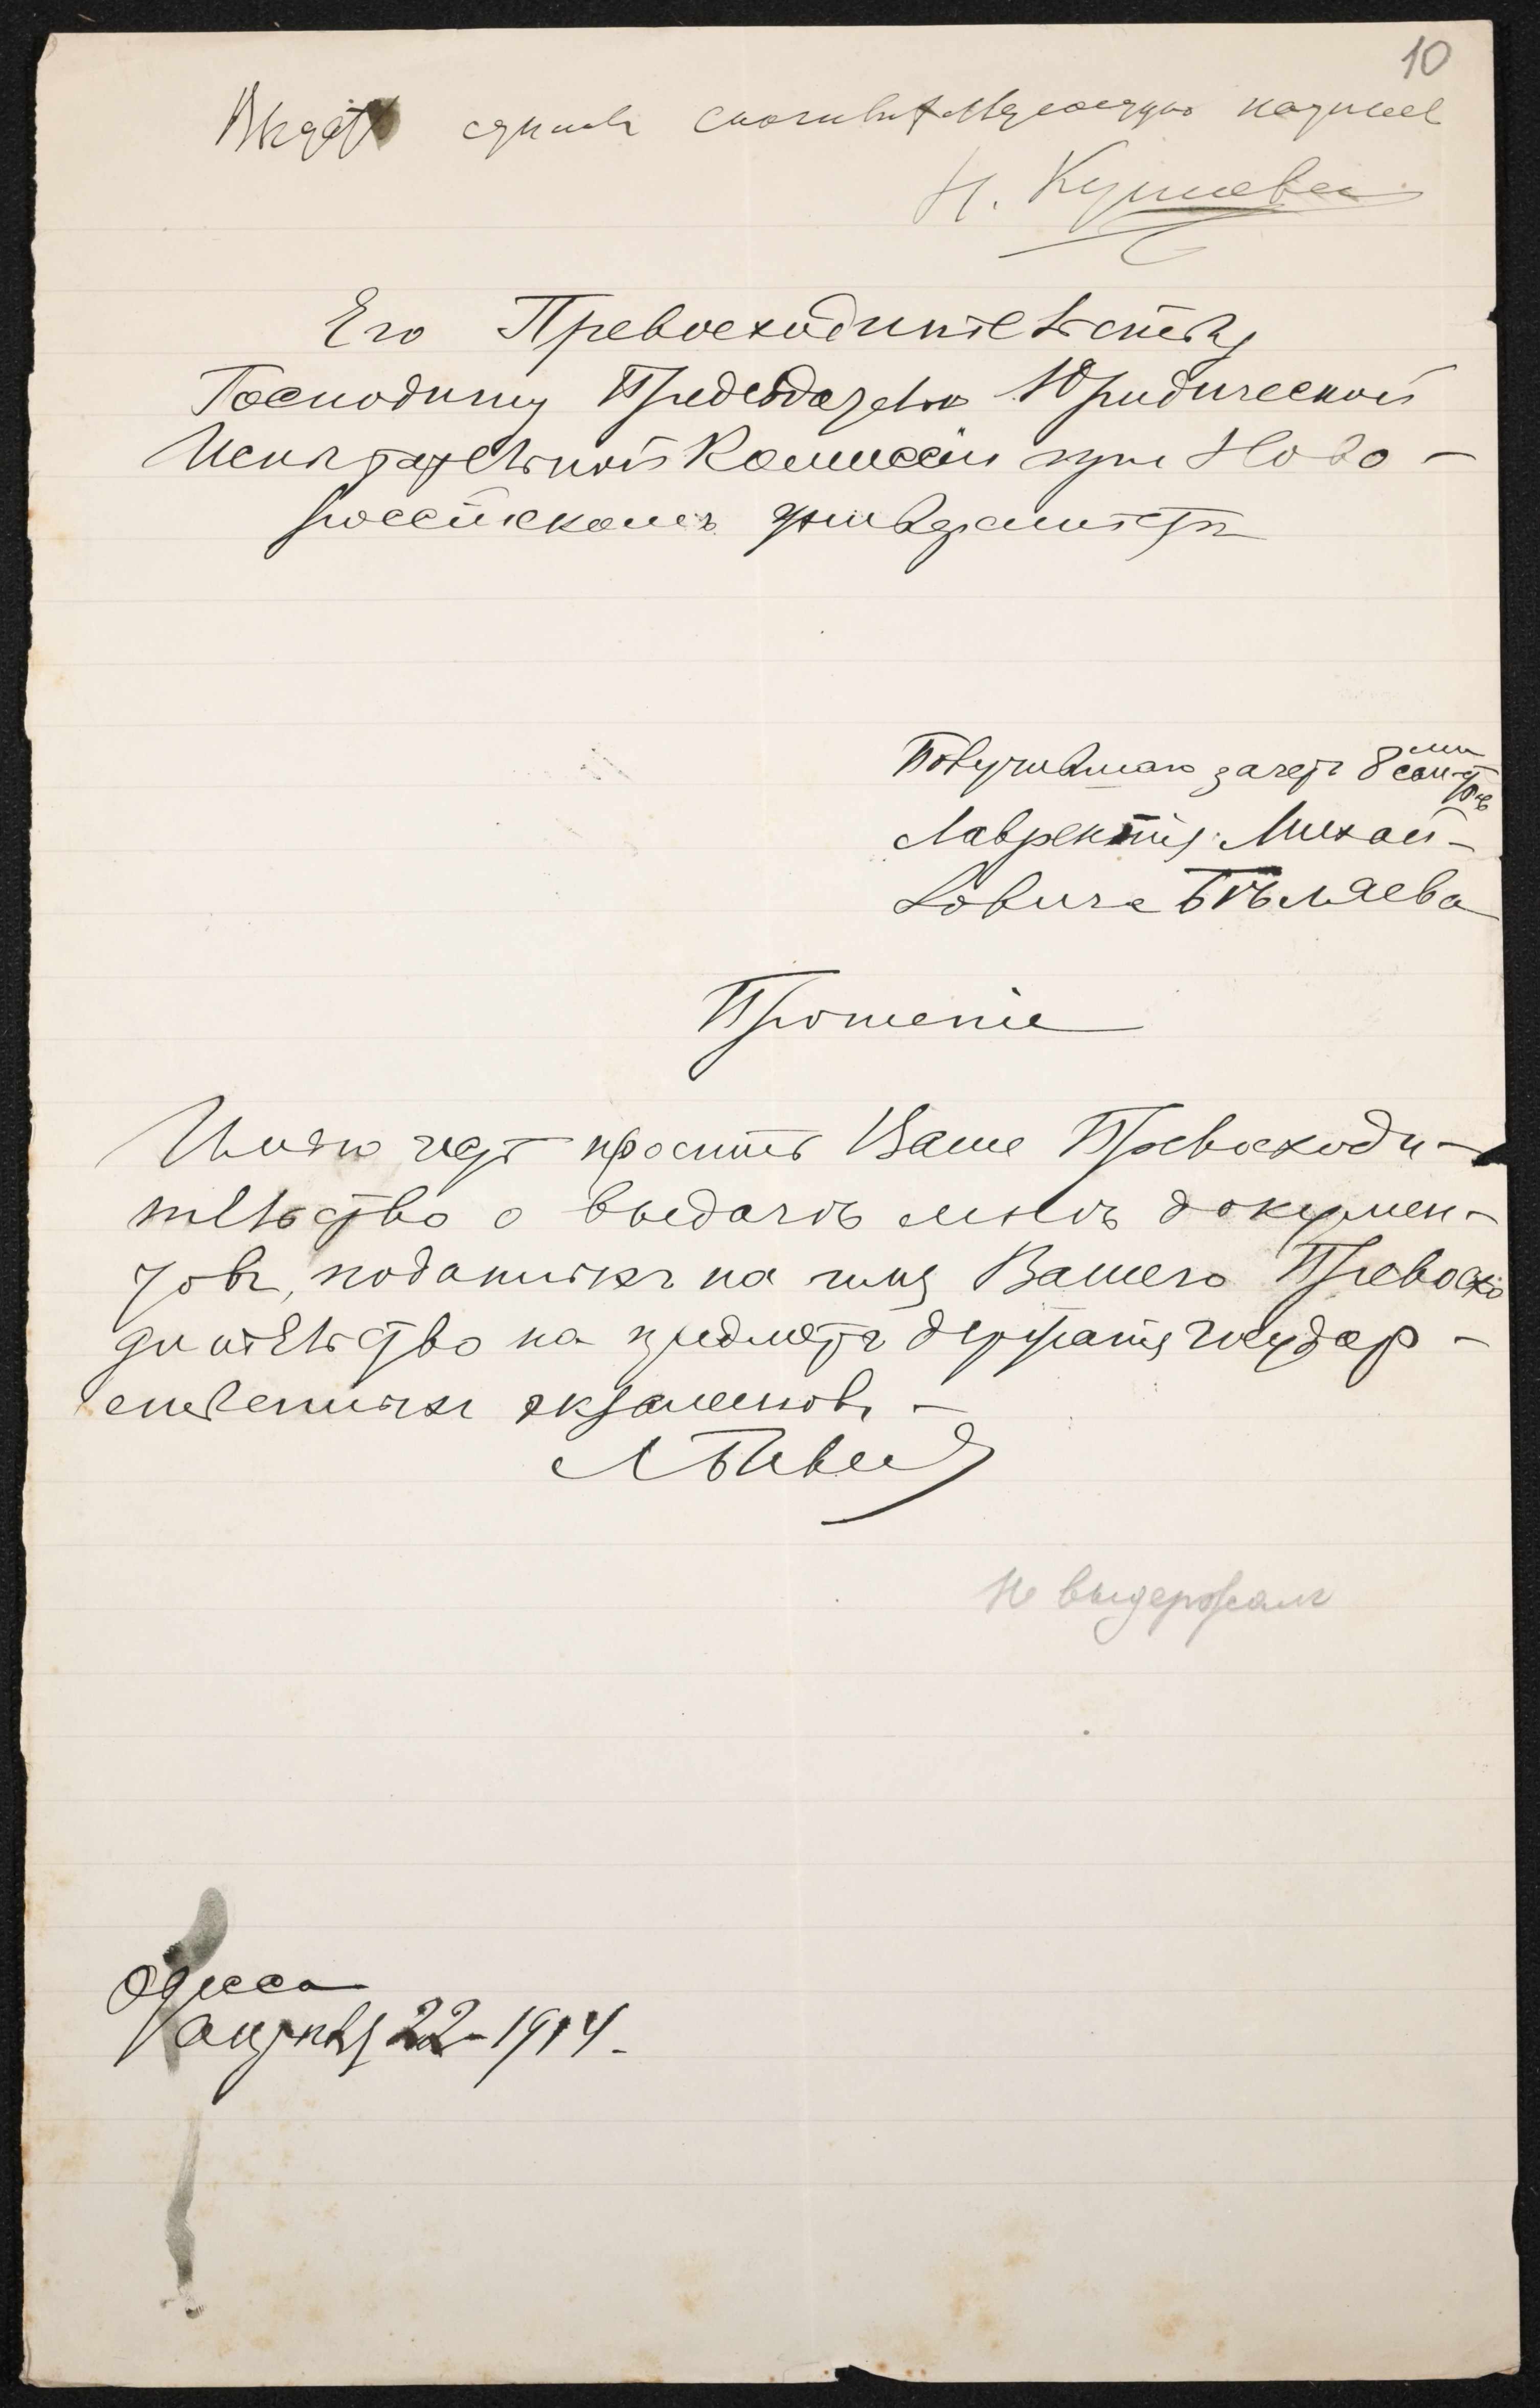 10
Выдать
Его Превосходительству
Господину Председателю Юридической
Испытательной Комиссіи при Ново-
россійскомъ университетѣ
Получившаго зачетъ 8ми семестровъ
Лаврентія Михай-
ловича Бѣляева
Прошеніе
Имѣю честь просить Ваше Превосходи-
тельство о выдачѣ мнѣ докумен-
товъ, поданныхъ на имя Вашего Превосхо
дительство на предметъ держанія государ-
ственныхъ экзаменовъ. –
ЛБѣляев
Не выдержалъ
Одесса
августа 22-1914.